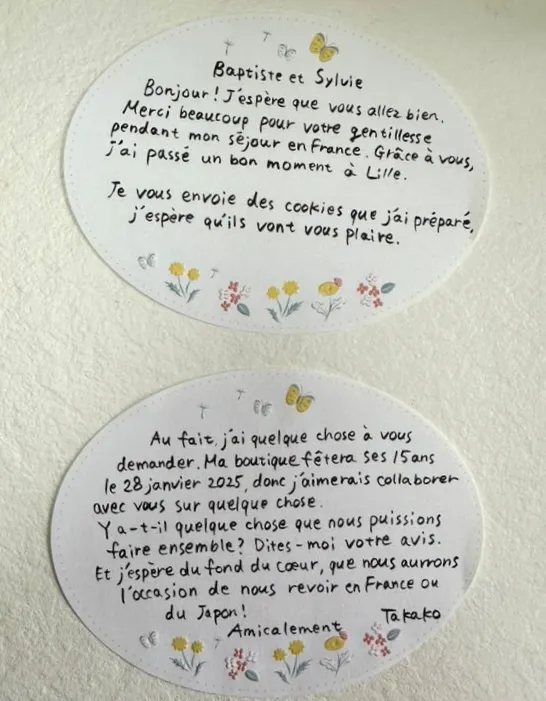 Baptiste et Sylvie
Bonjour! J'espère que vous allez bien.
Merci beaucoup pour votre gentillesse
pendant mon séjour en France. Grâce à vous,
j'ai passé un bon moment à Lille.
Je vous envoie des cookies que j'ai préparé,
j'espère qu'ils vont vous plaire.
Au fait, j'ai quelque chose à vous
demander. Ma boutique fêtera ses 15 ans
le 28 janvier 2025, donc j'aimerais collaborer
avec vous sur quelque chose.
Y a-t-il quelque chose que nous puissions
faire ensemble? Dites-moi votre avis.
Et j'espère du fond du cœur, que nous aurrons
l'occasion de nous revoir en France ou
du Japon!
Takako
Amicalement